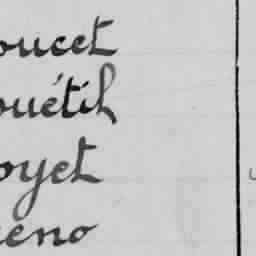 oucet
ouétil
oyet
eno